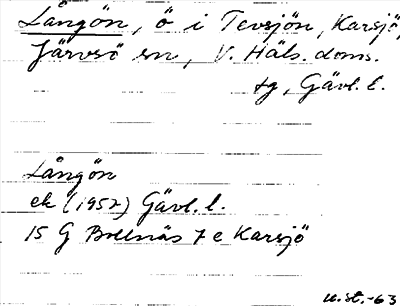 Långön, ö i Tevsjön, Karsjö,
Järvsö sn, V. Häls. doms.
tg, Gävl. l.
Långön
ek (1957) Gävl. l.
15 G Bollnäs 7 e Karsjö
u.st.-63